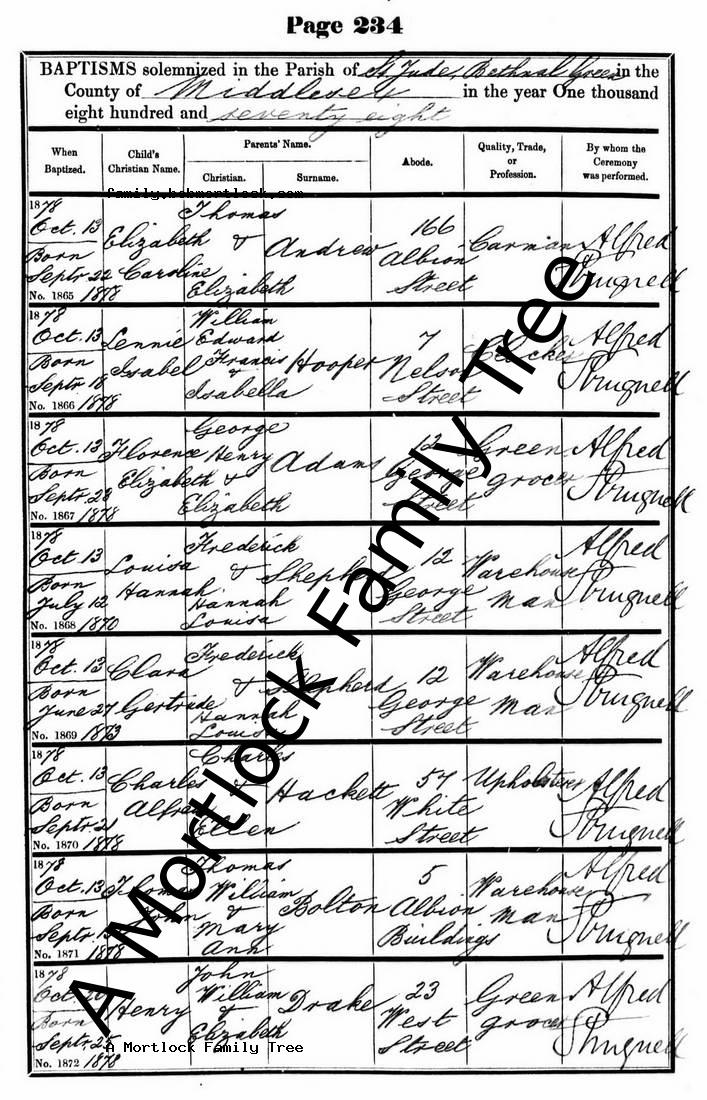 Page 234
BAPTISMS solemnized in the Parish of St Jude, Bethnal Green in the
County of Middlesex in the year One thousand
eight hundred and seventy eight
When Baptized. Child's Christian Name. Parents' Name. Christian. Surname. Abode. Quality, Trade, or Profession. By whom the Ceremony was performed.
family.bobmortlock.com
1878
Oct. 13
Born
Septr 22
1878
No. 1865
Elizabeth
Caroline
Thomas
&
Elizabeth
Andrew
166
Albion
Street
Carman
Alfred
Strugnell
1878
Oct. 13
Born
Septr 18
No. 1866 1878
Lennie
Isabel
William
Edward
Francis
&
Isabella
Hooper
7
Nelson
Street
Alfred
Strugnell
1878
Oct. 13
Born
Septr. 23
No. 1867 1878
Florence
Elizabeth
George
Henry
&
Elizabeth
Adams
12
George
Street
Green
grocer
Alfred
Strugnell
1878
Oct. 13
Born
July 12
No. 1868 1870
Louisa
Hannah
Frederick
&
Hannah
Louisa
Shepherd
12
George
Street
Warehouse
man
Alfred
Strugnell
1878
Oct. 13
Born
June 27
No. 1869 1873
Clara
Gertrude
Frederick
&
Hannah
Louisa
Shepherd
12
George
Street
Warehouse
man
Alfred
Strugnell
1878
Oct. 13
Born
Septr 21
No. 1870 1878
Charles
Alfred
Charles
&
Ellen
Hackett
57
White
Street
Upholsterer
Alfred
Strugnell
1878
Oct. 13
Born
Septr.
No. 1871 1878
Thomas
John
Thomas
William
&
Mary
Ann
Bolton
5
Albion
Buildings
Warehouse
man
Alfred
Strugnell
1878
Oct.
Born
Septr. 25
No. 1872 1878
Henry
John
William
&
Elizabeth
Drake
23
West
Street
Green
grocer
Alfred
Strugnell
A Mortlock Family Tree
A Mortlock Family Tree